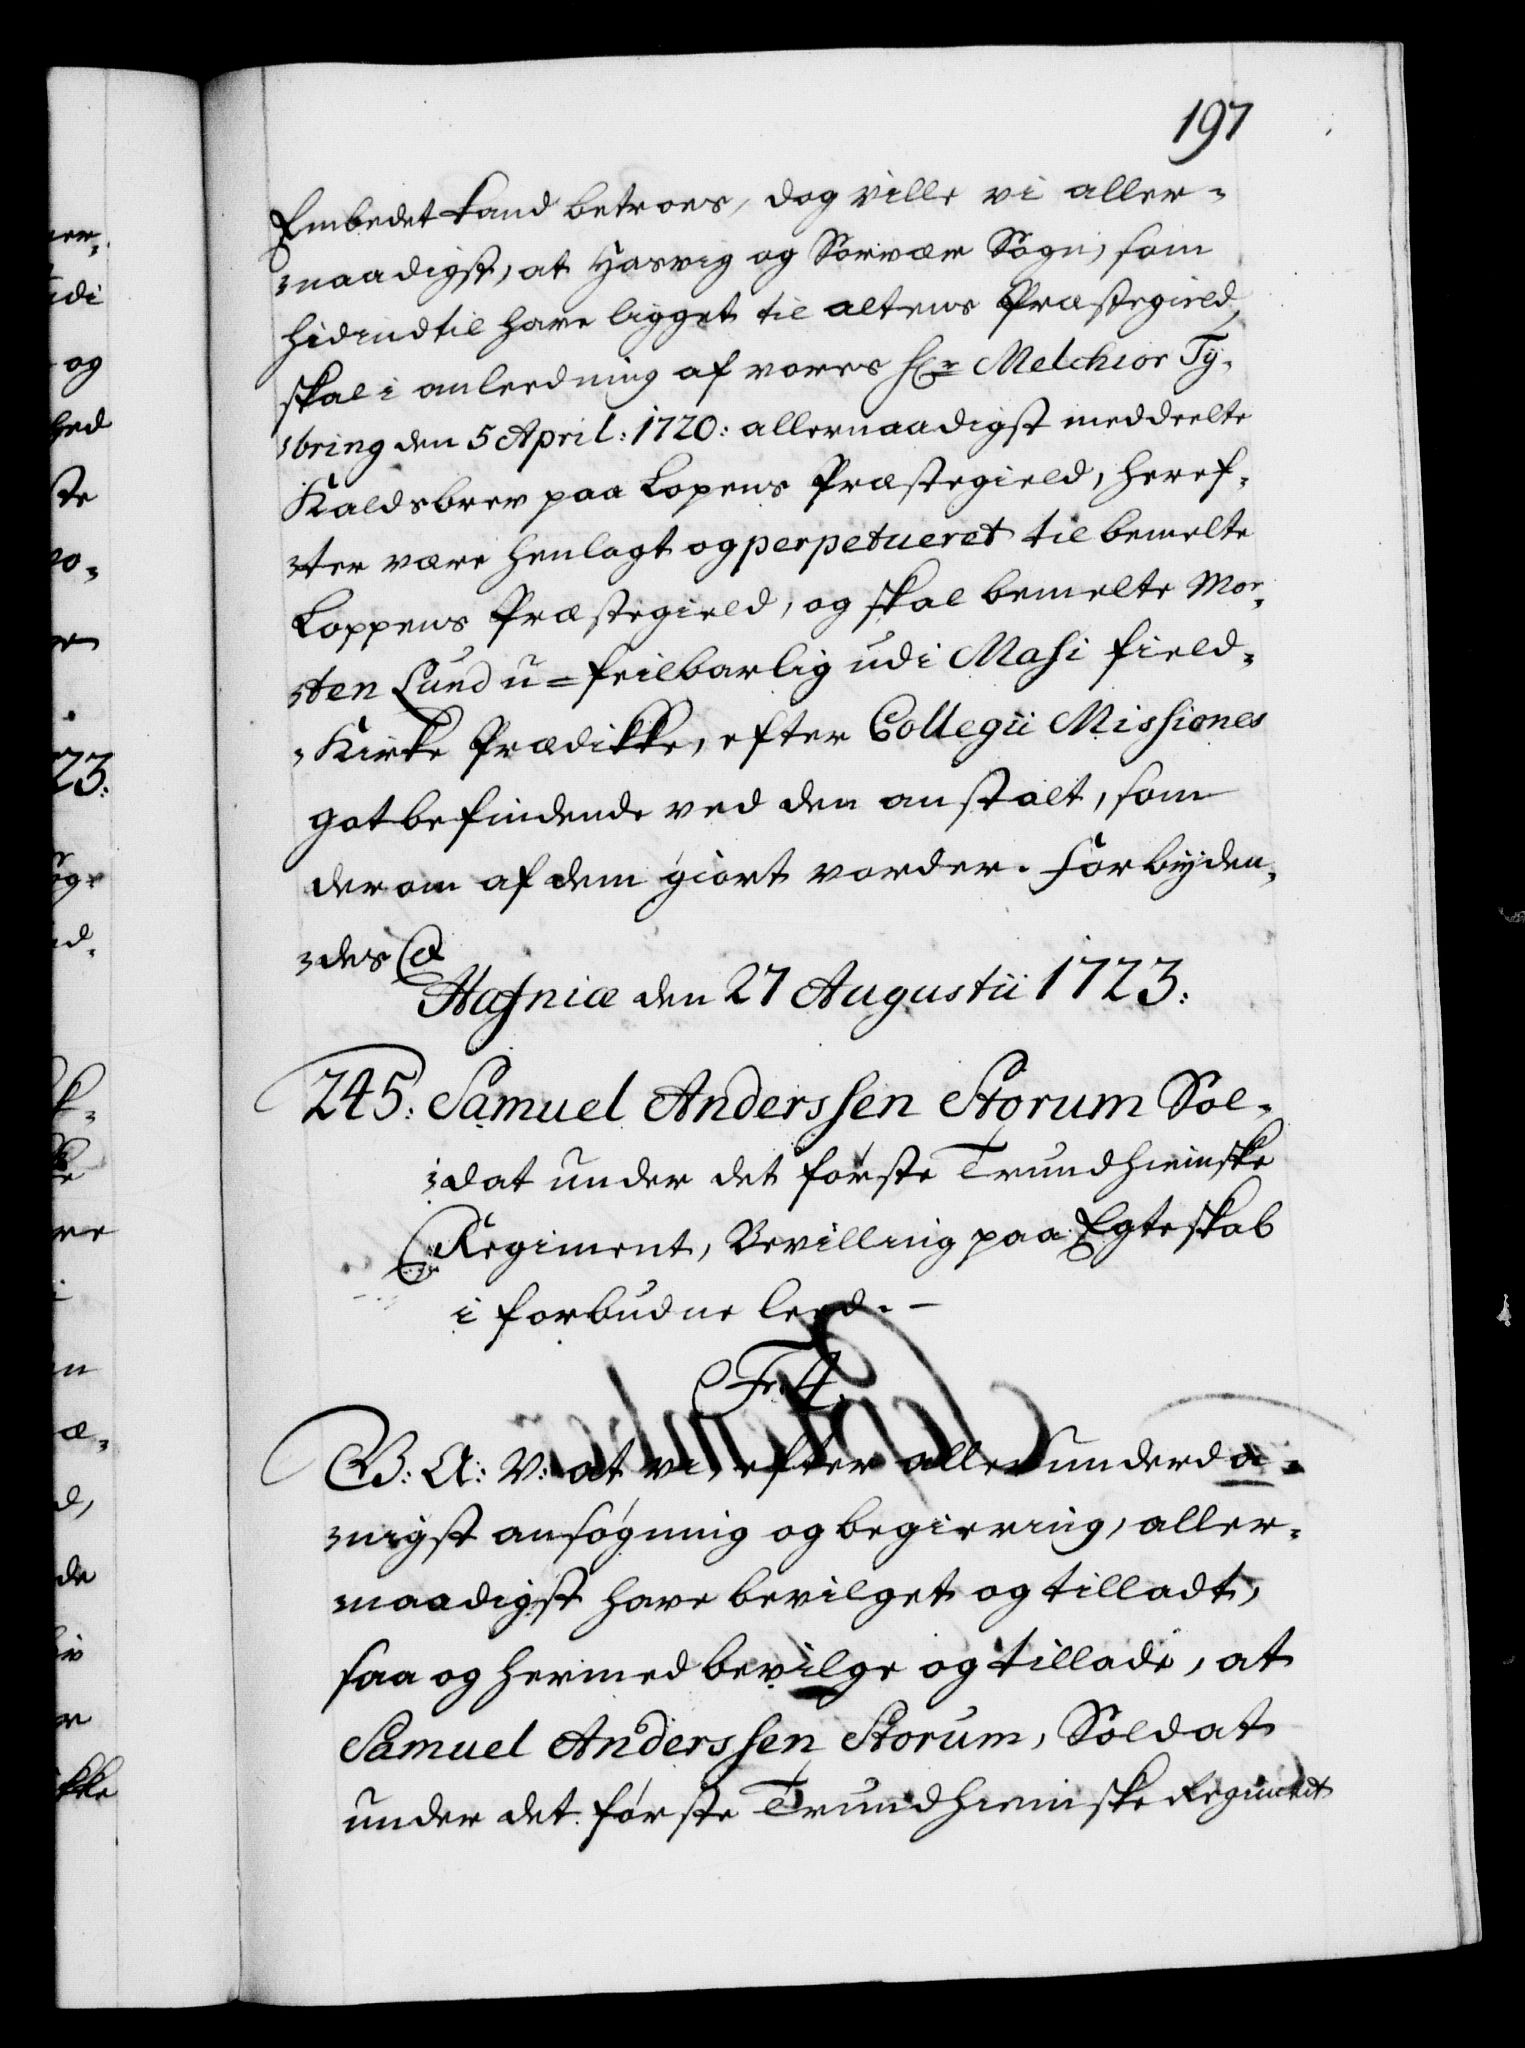 197
Embedet kand betroes, dog ville vi aller-
naadigst, at Hasvig og Sørvær Sogn, som
hidindtil have ligget til Altens Præstegield,
skal i anleedning af vores Hr Melchior Ty-
bring den 5 April: 1720: allernaadigst meddeelte
Kaldsbrev paa Lopens Præstegield, heref-
ter være henlagt og perpetueret til bemelte
Loppens Præstegield, og skal bemelte Mor-
ten Lund u=feilbarlig udi Masi field-
Kirke Prædikke, efter Collegii Missiones
gotbefindende ved den anstalt, som
derom af dem giort vorder. Forbyden-
des &
Hafniæ den 27 Augustii 1723:
245: Samuel Anderssen Storum Sol-
dat under det første Trundhiemske
Regiment, Bevilling paa Egteskab
i forbudne leed. –
Fr: 4.
G: A: V: at vi, efter allerunderdа-
nigst ansøgning og begiering, aller-
naadigst have bevilget og tilladt,
saa og hermed bevilge og tillade, at
Samuel Anderssen Storum, Soldat
under det første Trundhiemske Regiment